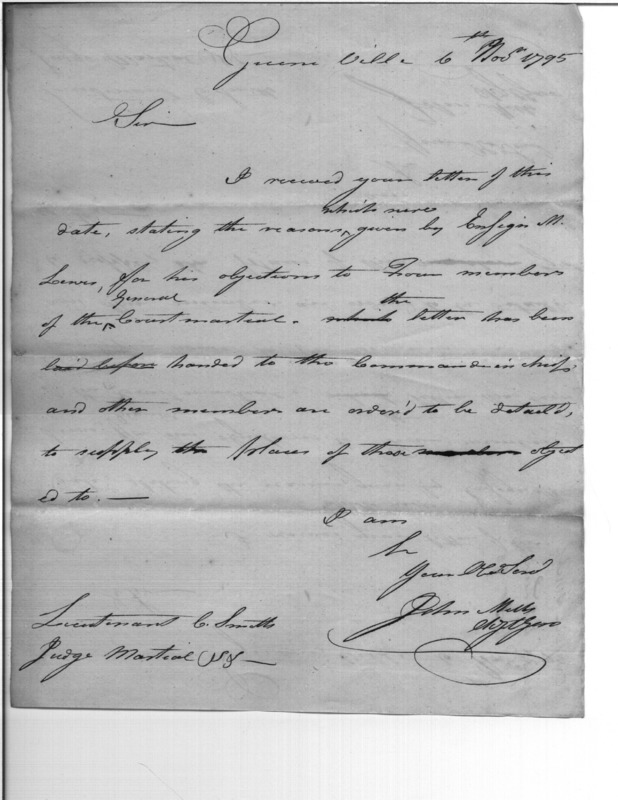 Greene Ville 6th Novr 1795
Sir
I received your letter of this
date, stating the reasons, which were given by Ensign M.
Lewis, for his objections to Four members
of the General Courtmartial. which the letter has been
laid before handed to the Commander in chief,
and other members are order'd to be detail'd,
to supply the places of those members object
ed to. —
I am
Sr
Your Ob Servt
John Mills
Adjt Genl
Lieutenant C. Smith
Judge Martial